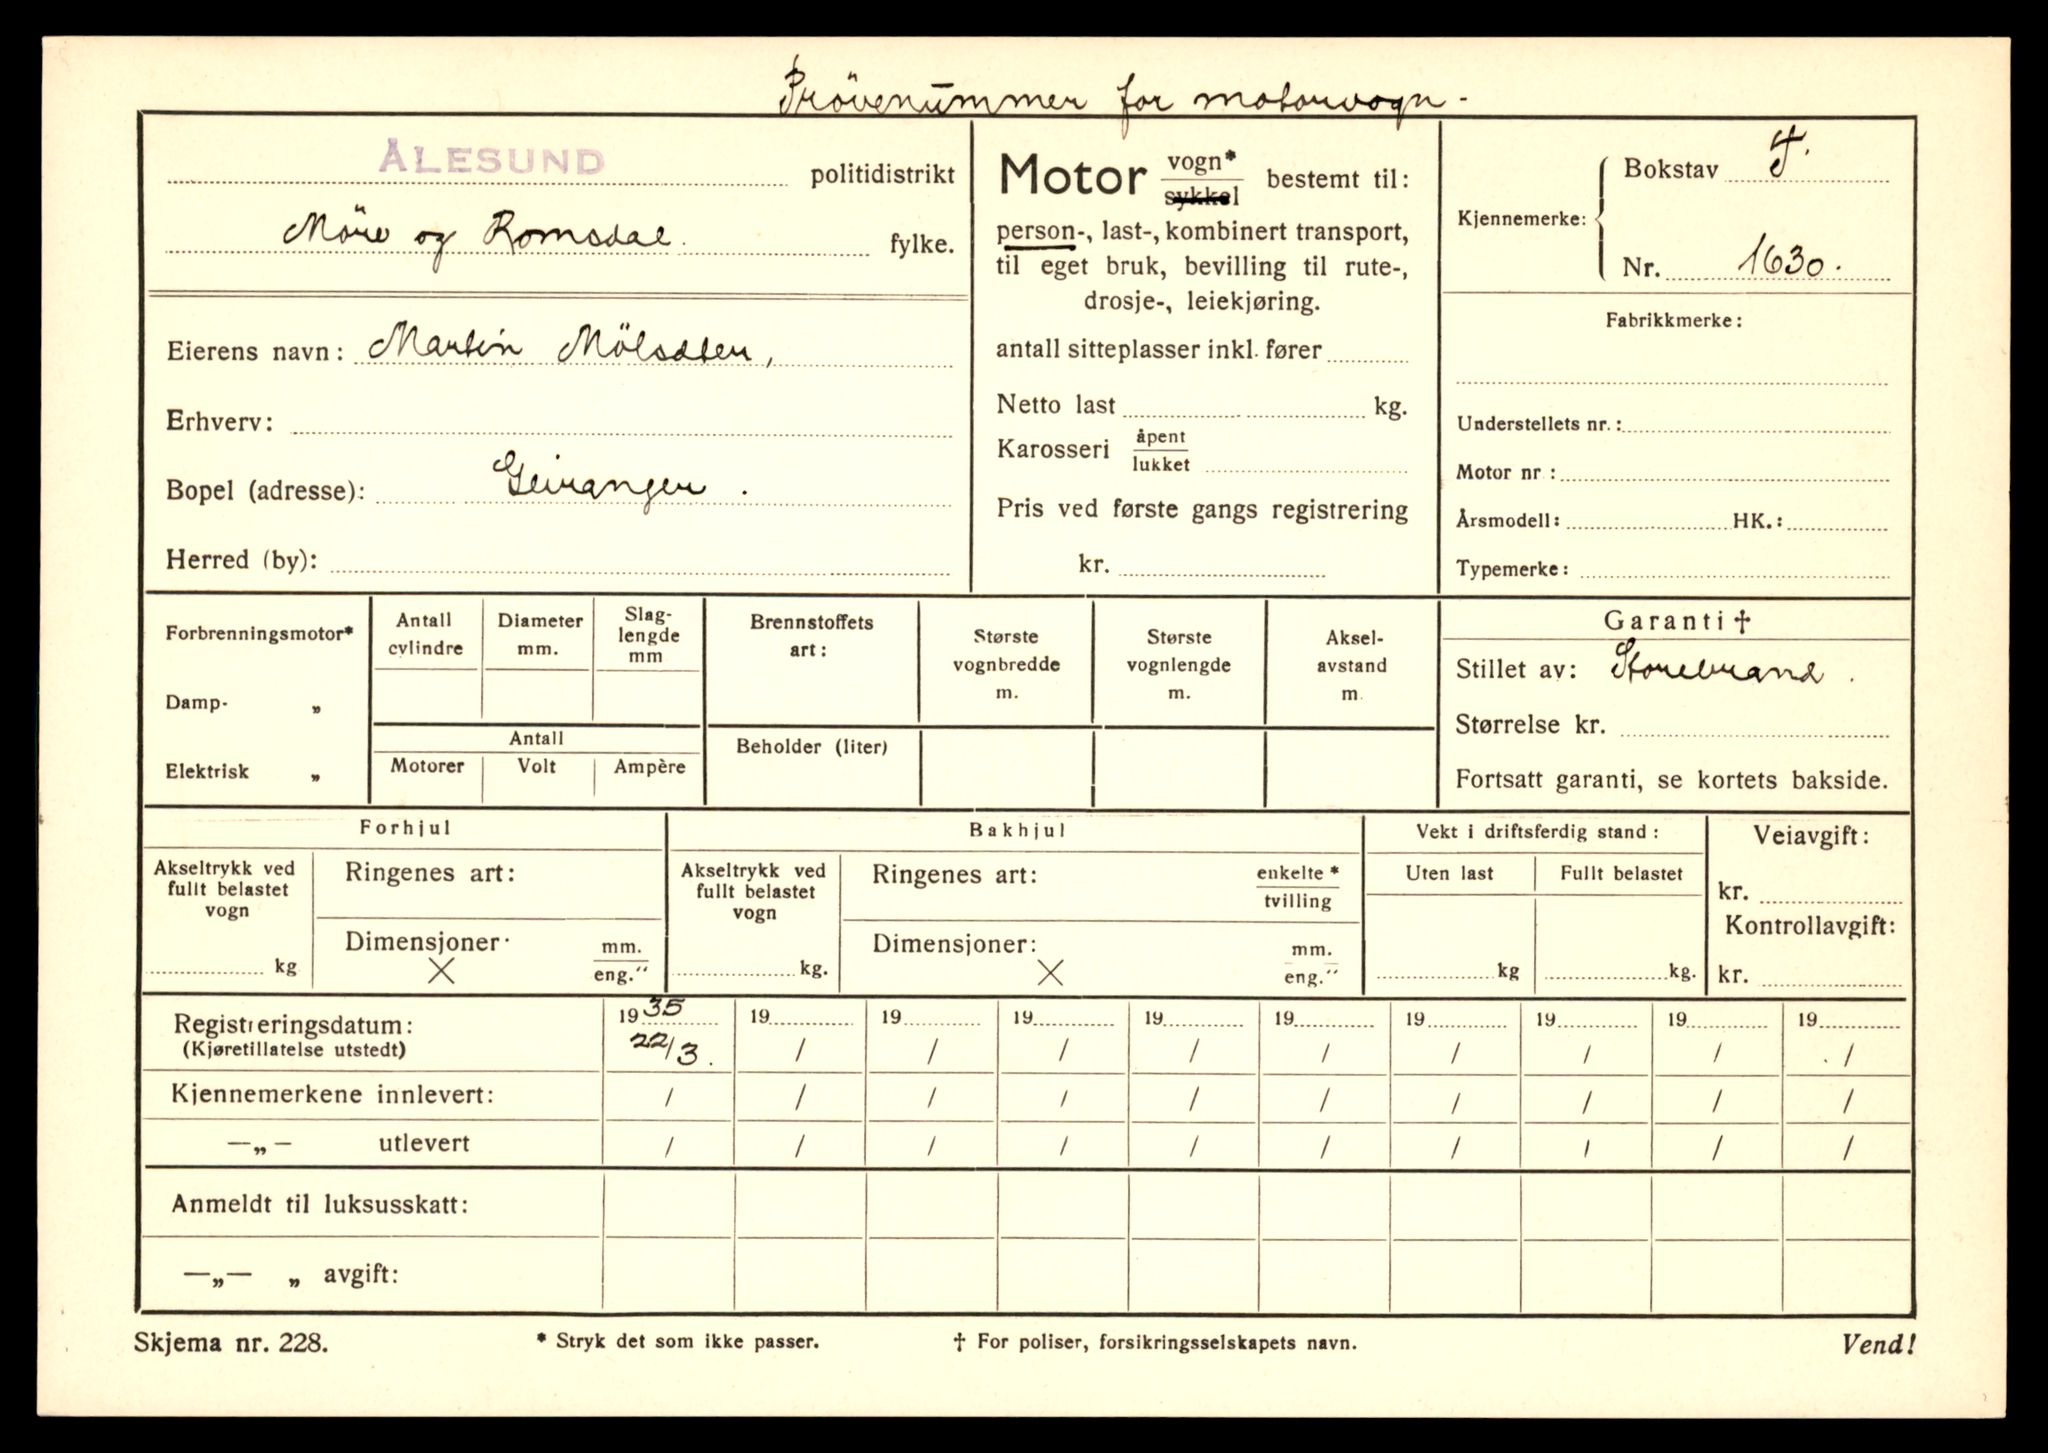 Prövenummer for motorvogn -
ÅLESUND politidistrikt
Möre og Romsdal. fylke.
Eierens navn: Martin Mölsäter,
Erhverv:
Bopel (adresse): Geiranger.
Herred (by):
Motor vogn* sykkel bestemt til:
person-, last-, kombinert transport,
til eget bruk, bevilling til rute-,
drosje-, leiekjøring.
antall sitteplasser inkl. fører
Netto last kg.
Karosseri åpent lukket
Pris ved første gangs registrering
kr.
Kjennemerke:
Bokstav T.
Nr. 1630.
Fabrikkmerke:
Understellets nr.:
Motor nr:
Årsmodell: HK.:
Typemerke:
Forbrenningsmotor*
Damp- „
Elektrisk „
Antall cylindre
Diameter mm.
Slag-lengde mm
Antall
Motorer Volt Ampère
Brennstoffets art:
Beholder (liter)
Største vognbredde m.
Største vognlengde m.
Aksel-avstand m
Garanti †
Stillet av: Storebrand.
Størrelse kr.
Fortsatt garanti, se kortets bakside.
Forhjul
Akseltrykk ved fullt belastet vogn
kg
Ringenes art:
Dimensjoner: mm. eng.″
×
Bakhjul
Akseltrykk ved fullt belastet vogn
kg.
Ringenes art: enkelte* tvilling
Dimensjoner: mm. eng.″
×
Vekt i driftsferdig stand:
Uten last Fullt belastet
kg kg.
Veiavgift:
kr.
Kontrollavgift:
kr.
Registreringsdatum: 1935 19 19 19 19 19 19 19 19 19
(Kjøretillatelse utstedt) 22/3. / / / / / / / / /
Kjennemerkene innlevert: / / / / / / / / / /
—„— utlevert / / / / / / / / / /
Anmeldt til luksusskatt:
—„— „ avgift:
Skjema nr. 228. * Stryk det som ikke passer. † For poliser, forsikringsselskapets navn. Vend!